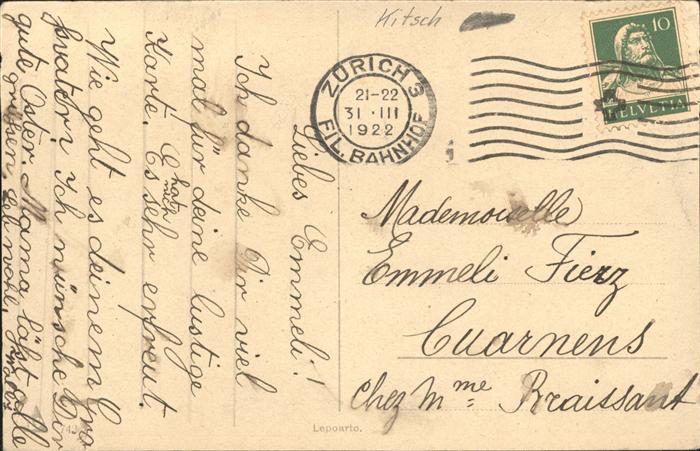 Kitsch
10
HELVETIA
ZÜRICH 3
21-22
31·III
1922
FIL. BAHNHOF
Liebes Emmeli!
Ich danke Dir viel
mal für deine lustige
Karte. Es hat mich sehr erfreut.
Wie geht es deinem Gro
svater? Ich wünsche Dir
gute Oster. Mama läst alle
grüssen. Leb wohl,
Mademoiselle
Emmeli Fierz
Cuarnens
chez Mme Braissant
Lepoarto.